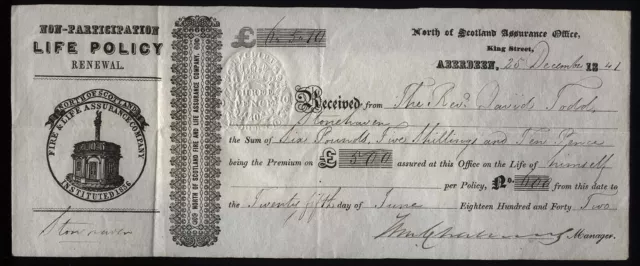 NON-PARTICIPATION
LIFE POLICY
RENEWAL.
NORTH OF SCOTLAND
FIRE & LIFE ASSURANCE COMPANY
INSTITUTED 1836
Stonehaven
NORTH OF SCOTLAND FIRE AND LIFE ASSURANCE COMPANY
£ 6.5.10
North of Scotland Assurance Office,
King Street,
ABERDEEN, 25 December 1841
Received from The Revd. David Todd
Stonehaven
the Sum of Six Pounds, Five Shillings and Ten Pence
being the Premium on £500 assured at this Office on the Life of himself
per Policy, No. 600 from this date to
the Twenty fifth day of June Eighteen Hundred and Forty Two
Manager.